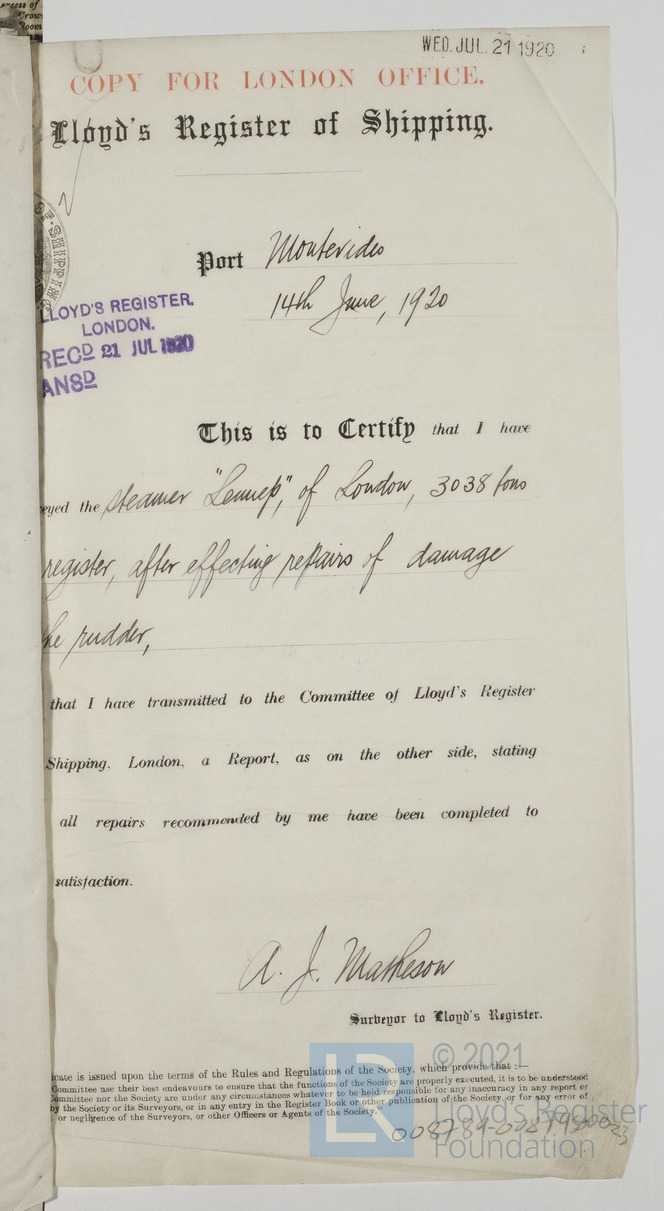 WED. JUL. 21 1920
COPY FOR LONDON OFFICE.
Lloyd's Register of Shipping.
Port Montevideo
14th June, 1920
LLOYD'S REGISTER.
LONDON.
RECD 21 JUL 1920
ANSD
This is to Certify that I have
eyed the steamer "Lennep", of London, 3038 tons
register, after effecting repairs of damage
he rudder,
that I have transmitted to the Committee of Lloyd's Register
Shipping, London, a Report, as on the other side, stating
all repairs recommended by me have been completed to
satisfaction.
A. J. Matheson
Surveyor to Lloyd's Register.
icate is issued upon the terms of the Rules and Regulations of the Society, which provide that :—
Committee use their best endeavours to ensure that the functions of the Society are properly executed, it is to be understood
Committee nor the Society are under any circumstances whatever to be held responsible for any inaccuracy in any report or
by the Society or its Surveyors, or in any entry in the Register Book or other publication of the Society, or for any error of
or negligence of the Surveyors, or other Officers or Agents of the Society."
© 2021
Lloyd's Register
Foundation
LR